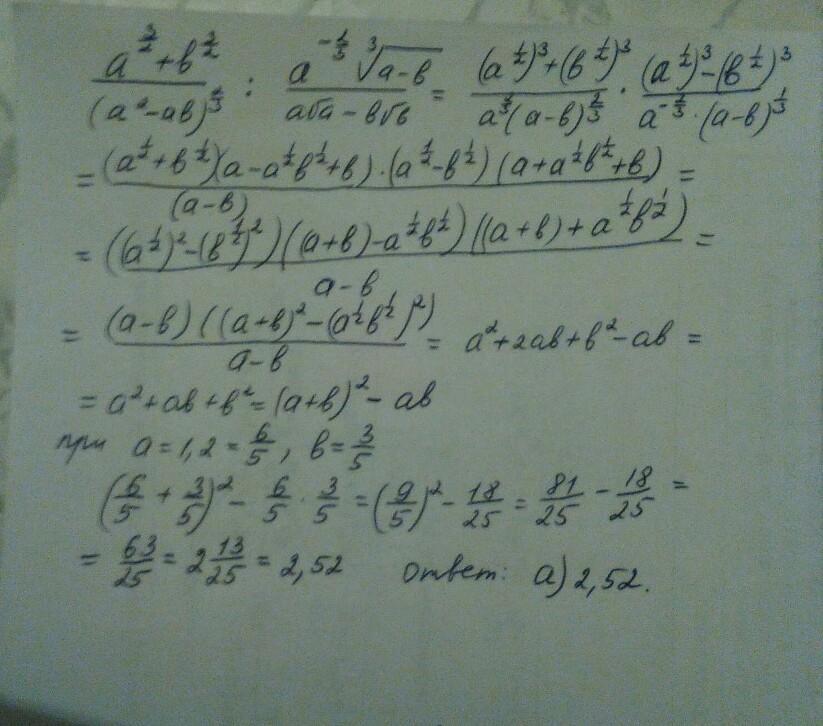 (a^{3/2}+b^{3/2})/(a²-ab)^{2/3} : (a^{-1/3} ∛(a-b))/(a√a-b√b) = ((a^{1/2})³+(b^{1/2})³)/(a^{2/3}(a-b)^{2/3}) · ((a^{1/2})³-(b^{1/2})³)/(a^{-2/3}·(a-b)^{1/3})
= ((a^{1/2}+b^{1/2})(a-a^{1/2}b^{1/2}+b)·(a^{1/2}-b^{1/2})(a+a^{1/2}b^{1/2}+b))/(a-b) =
= (((a^{1/2})²-(b^{1/2})²)((a+b)-a^{1/2}b^{1/2})((a+b)+a^{1/2}b^{1/2}))/(a-b) =
= ((a-b)((a+b)²-(a^{1/2}b^{1/2})²))/(a-b) = a²+2ab+b²-ab =
= a²+ab+b²=(a+b)²-ab
при a=1,2=6/5, b=3/5
(6/5+3/5)²-6/5·3/5=(9/5)²-18/25=81/25-18/25=
= 63/25=2 13/25=2,52 ответ: а) 2,52.